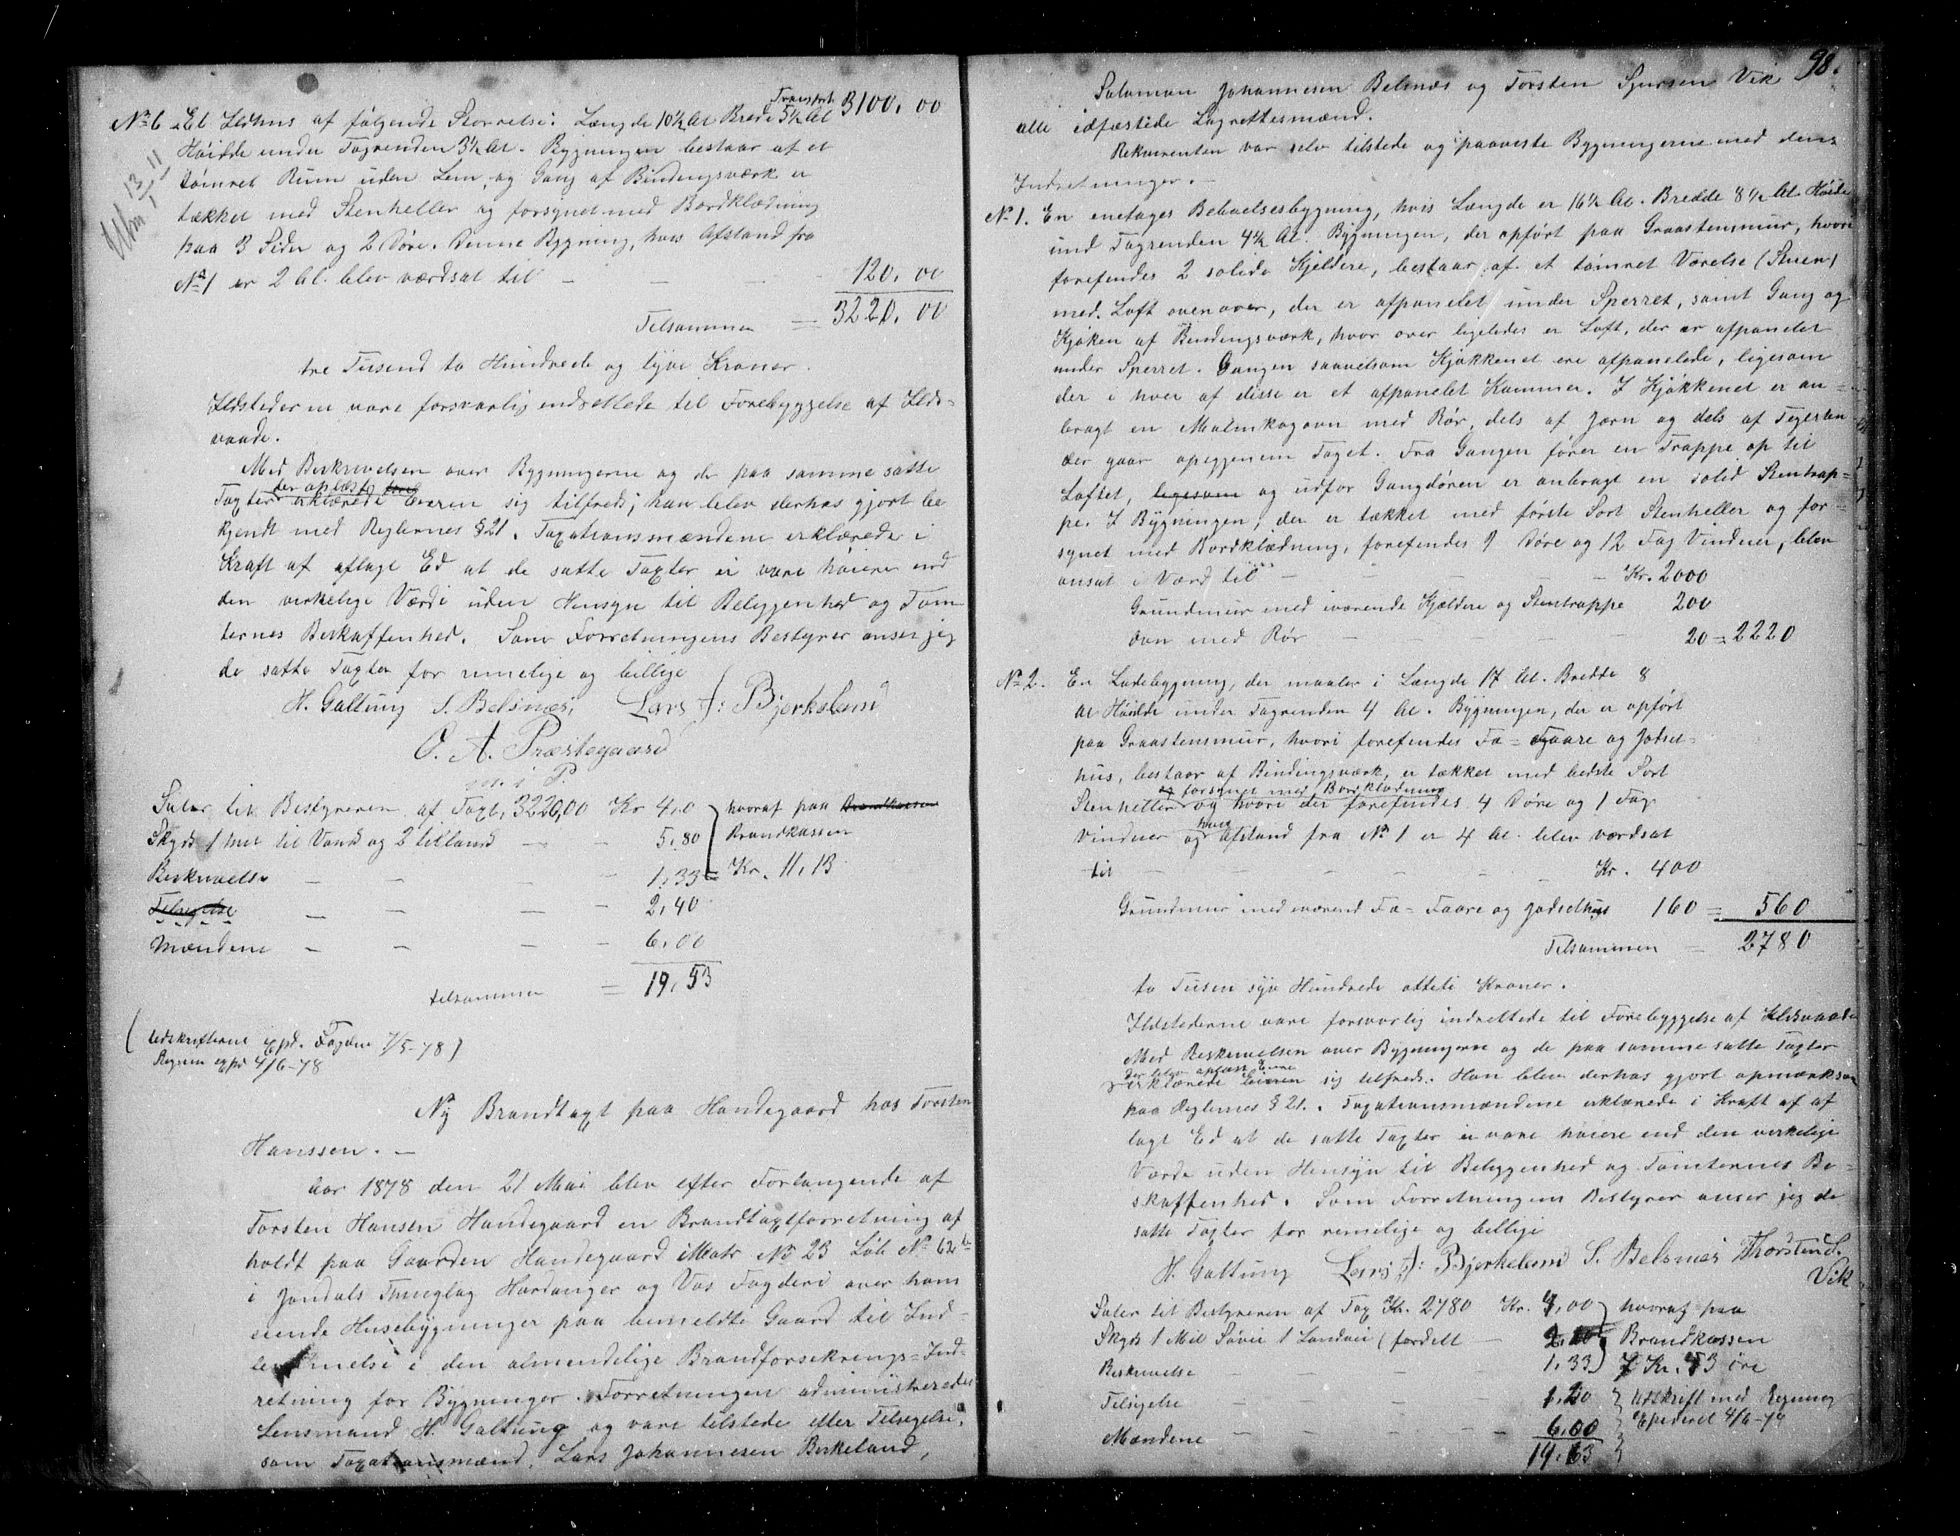 Transport 3100,00
No 6 Et Ildhus af følgende Størrelse: Længde 10½ Al Brede 5½ Al
Høide under Tagrenden 3½ Al. Bygningen bestaar af et
tømret Rum uden Lem, og Gang af Bindingsværk er
tækket med Stenheller og forsynet med Bordklædning
paa 3 Sider og 2 Døre. Denne Bygning, hvis Afstand fra
No 1 er 2 Al. blev værdsat til - - - 120,00
Tilsammen = 3220,00
tre Tusend to Hundrede og tyve Kroner.
Ildstederne vare forsvarlig indrettede til Forebyggelse af Ilds-
vaade.
Med Beskrivelsen over Bygningerne og de paa samme satte
Taxter der oplæstes erklærede Eieren sig tilfreds; han blev derhos gjort be
kjendt med Reglernes § 21. Taxationsmændene erklærede i
Kraft af aflagt Ed at de satte Taxter ei vare høiere end
den virkelige Værdi uden Hensyn til Beliggenhed og Tom
ternes Beskaffenhed. Som Forretningens Bestyrer anser jeg
de satte Taxter for rimelige og billige
H. Galtung S. Belsnæs, Lars J: Bjerkeland
O. A. Præstegaard
m. i P.
Salær til Bestyreren af Taxt, 3220,00 Kr 4,0 hvoraf paa Brandkassen
Skyds 1 Mil til Vand og 2 til Land - - 5,80 Brandkassen
Beskrivelse - - - - 1,33 = Kr. 11,13
Tilsigelse - - - - 2,40
Mændene - - - - 6,00
tilsammen = 19,53
(Udskriftene expd. Fogden 7/5-78)
Regnin expd 4/6-78
Ny Brandtaxt paa Handegaard hos Torsten
Hanssen. -
Aar 1878 den 21 Mai blev efter Forlangende af
Torsten Hansen Handegaard en Brandtaxtforretning af
holdt paa Gaarden Handegaard Matr No 23 Løb No 62b
i Jondals Thinglag Hardanger og Vos Fogderi over ham
eiende Husebygninger paa bemeldte Gaard til Ind-
lemmelse i den almindelige Brandforsikrings-Ind-
retning for Bygninger. Forretningen administreredes
Lensmand H. Galtung og vare tilstede efter Tilsigelse,
som Taxationsmænd, Lars Johannesen Birkeland,
98.
Salomon Johannesen Belsnæs og Torsten Sjursen Vik
alle edfæstede Lagrettesmænd.
Rekvirenten var selv tilstede og paaviste Bygningerne med dens
Indretninger. -
No 1. En enetages Beboelsesbygning, hvis Længde er 16½ Al. Bredde 8½ Al. Høide
und Tagrenden 4½ Al. Bygningen, der opført paa Graastensmur, hvori
forefindes 2 solide Kjeldere, bestaar af et tømret Værelse (Stuen)
med Loft ovenover, der er afpanelet under Sperret, samt Gang og
Kjøken af Bindingsværk, hvor over ligeledes er Loft, der er afpanelet
under Sperret. Gangen saavelsom Kjøkkenet ere afpanelede, ligesom
der i hver af disse er et afpanelet Kammer. I Kjøkkenet er an-
bragt en Malmkogovn med Rør, dels af Jern og dels af Teglsten
der gaar opigjennem Taget. Fra Gangen fører en Trappe op til
Loftet, ligesom og udfor Gangdøren er anbragt en solid Stentrap-
pe. I Bygningen, der er tækket med første Sort Stenheller og for-
synet med Bordklædning, forefindes 9 Døre og 12 Fag Vinduer, blev
ansat i Værd til - - - - Kr. 2000
Grundmur med iværende Kjældere og Stentrappe 200
Ovn med Rør - - - - 20 = 2220
No 2. En Ladebygning, der maaler i Længde 17 Al. Bredde 8
Al Høide under Tagrenden 4 Al. Bygningen, der er opført
paa Graastensmur, hvori forefindes Fæ- Faare og Gjødsel-
hus, bestaar af Bindingsværk, er tækket med bedste Sort
Stenheller og forsynet med Bordklædning og hvori der forefindes 4 Døre og 1 Fag
Vinduer og hvis Afstand fra No 1 er 4 Al. blev værdsat
til - - - - - Kr. 400
Grundmur med iværend Fæ- Faare og Gjødselhus 160 = 560
Tilsammen - 2780
to Tusen syv Hundrede otteti Kroner.
Ildstederne vare forsvarlig indrettede til Forebyggelse af Ildsvaade
Med Beskrivelsen over Bygningerne og de paa samme satte Taxter
der blev oplæst Eierne
erklærede Eieren sig tilfreds. Han blev derhos gjort opmærksom
paa Reglernes § 21. Taxationsmændene erklærede i Kraft af af
lagt Ed at de satte Taxter ei vare høiere end den virkelige
Værde uden Hensyn til Beliggenhed og Tomternes Be-
skaffenhed. Som Forretningens Bestyrer anser jeg de
satte Taxter for rimelige og billige
H. Galtung Lars J: Bjerkeland S. Belsnæs Thorsten S.
Vik
Salær til Bestyreren af Tax Kr. 2780 Kr. 4,00 hvoraf paa
Skyds 1 Mil Søvei 1 Landvei (fordelt - Brandkassen
Beskrivelse - - - 1,33 Kr. 53 øre
Tilsigelse - - - 1,20 Udskrift med Regning
Mændene - - - - 6,00 Expederet 4/6-78